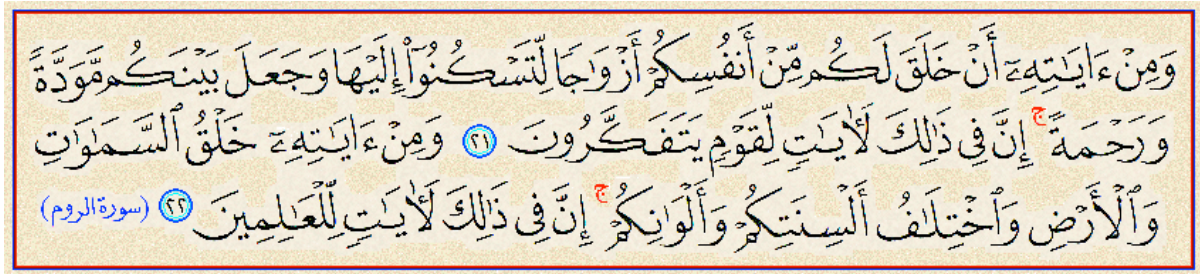 وَمِنْ ءَايَـٰتِهِۦٓ أَنْ خَلَقَ لَكُم مِّنْ أَنفُسِكُمْ أَزْوَٰجًا لِّتَسْكُنُوٓا۟ إِلَيْهَا وَجَعَلَ بَيْنَكُم مَّوَدَّةً
وَرَحْمَةً ۚ إِنَّ فِى ذَٰلِكَ لَـَٔايَـٰتٍ لِّقَوْمٍ يَتَفَكَّرُونَ ٢١ وَمِنْ ءَايَـٰتِهِۦ خَلْقُ ٱلسَّمَـٰوَٰتِ
وَٱلْأَرْضِ وَٱخْتِلَـٰفُ أَلْسِنَتِكُمْ وَأَلْوَٰنِكُمْ ۚ إِنَّ فِى ذَٰلِكَ لَـَٔايَـٰتٍ لِّلْعَـٰلِمِينَ ٢٢ (سورة الروم)